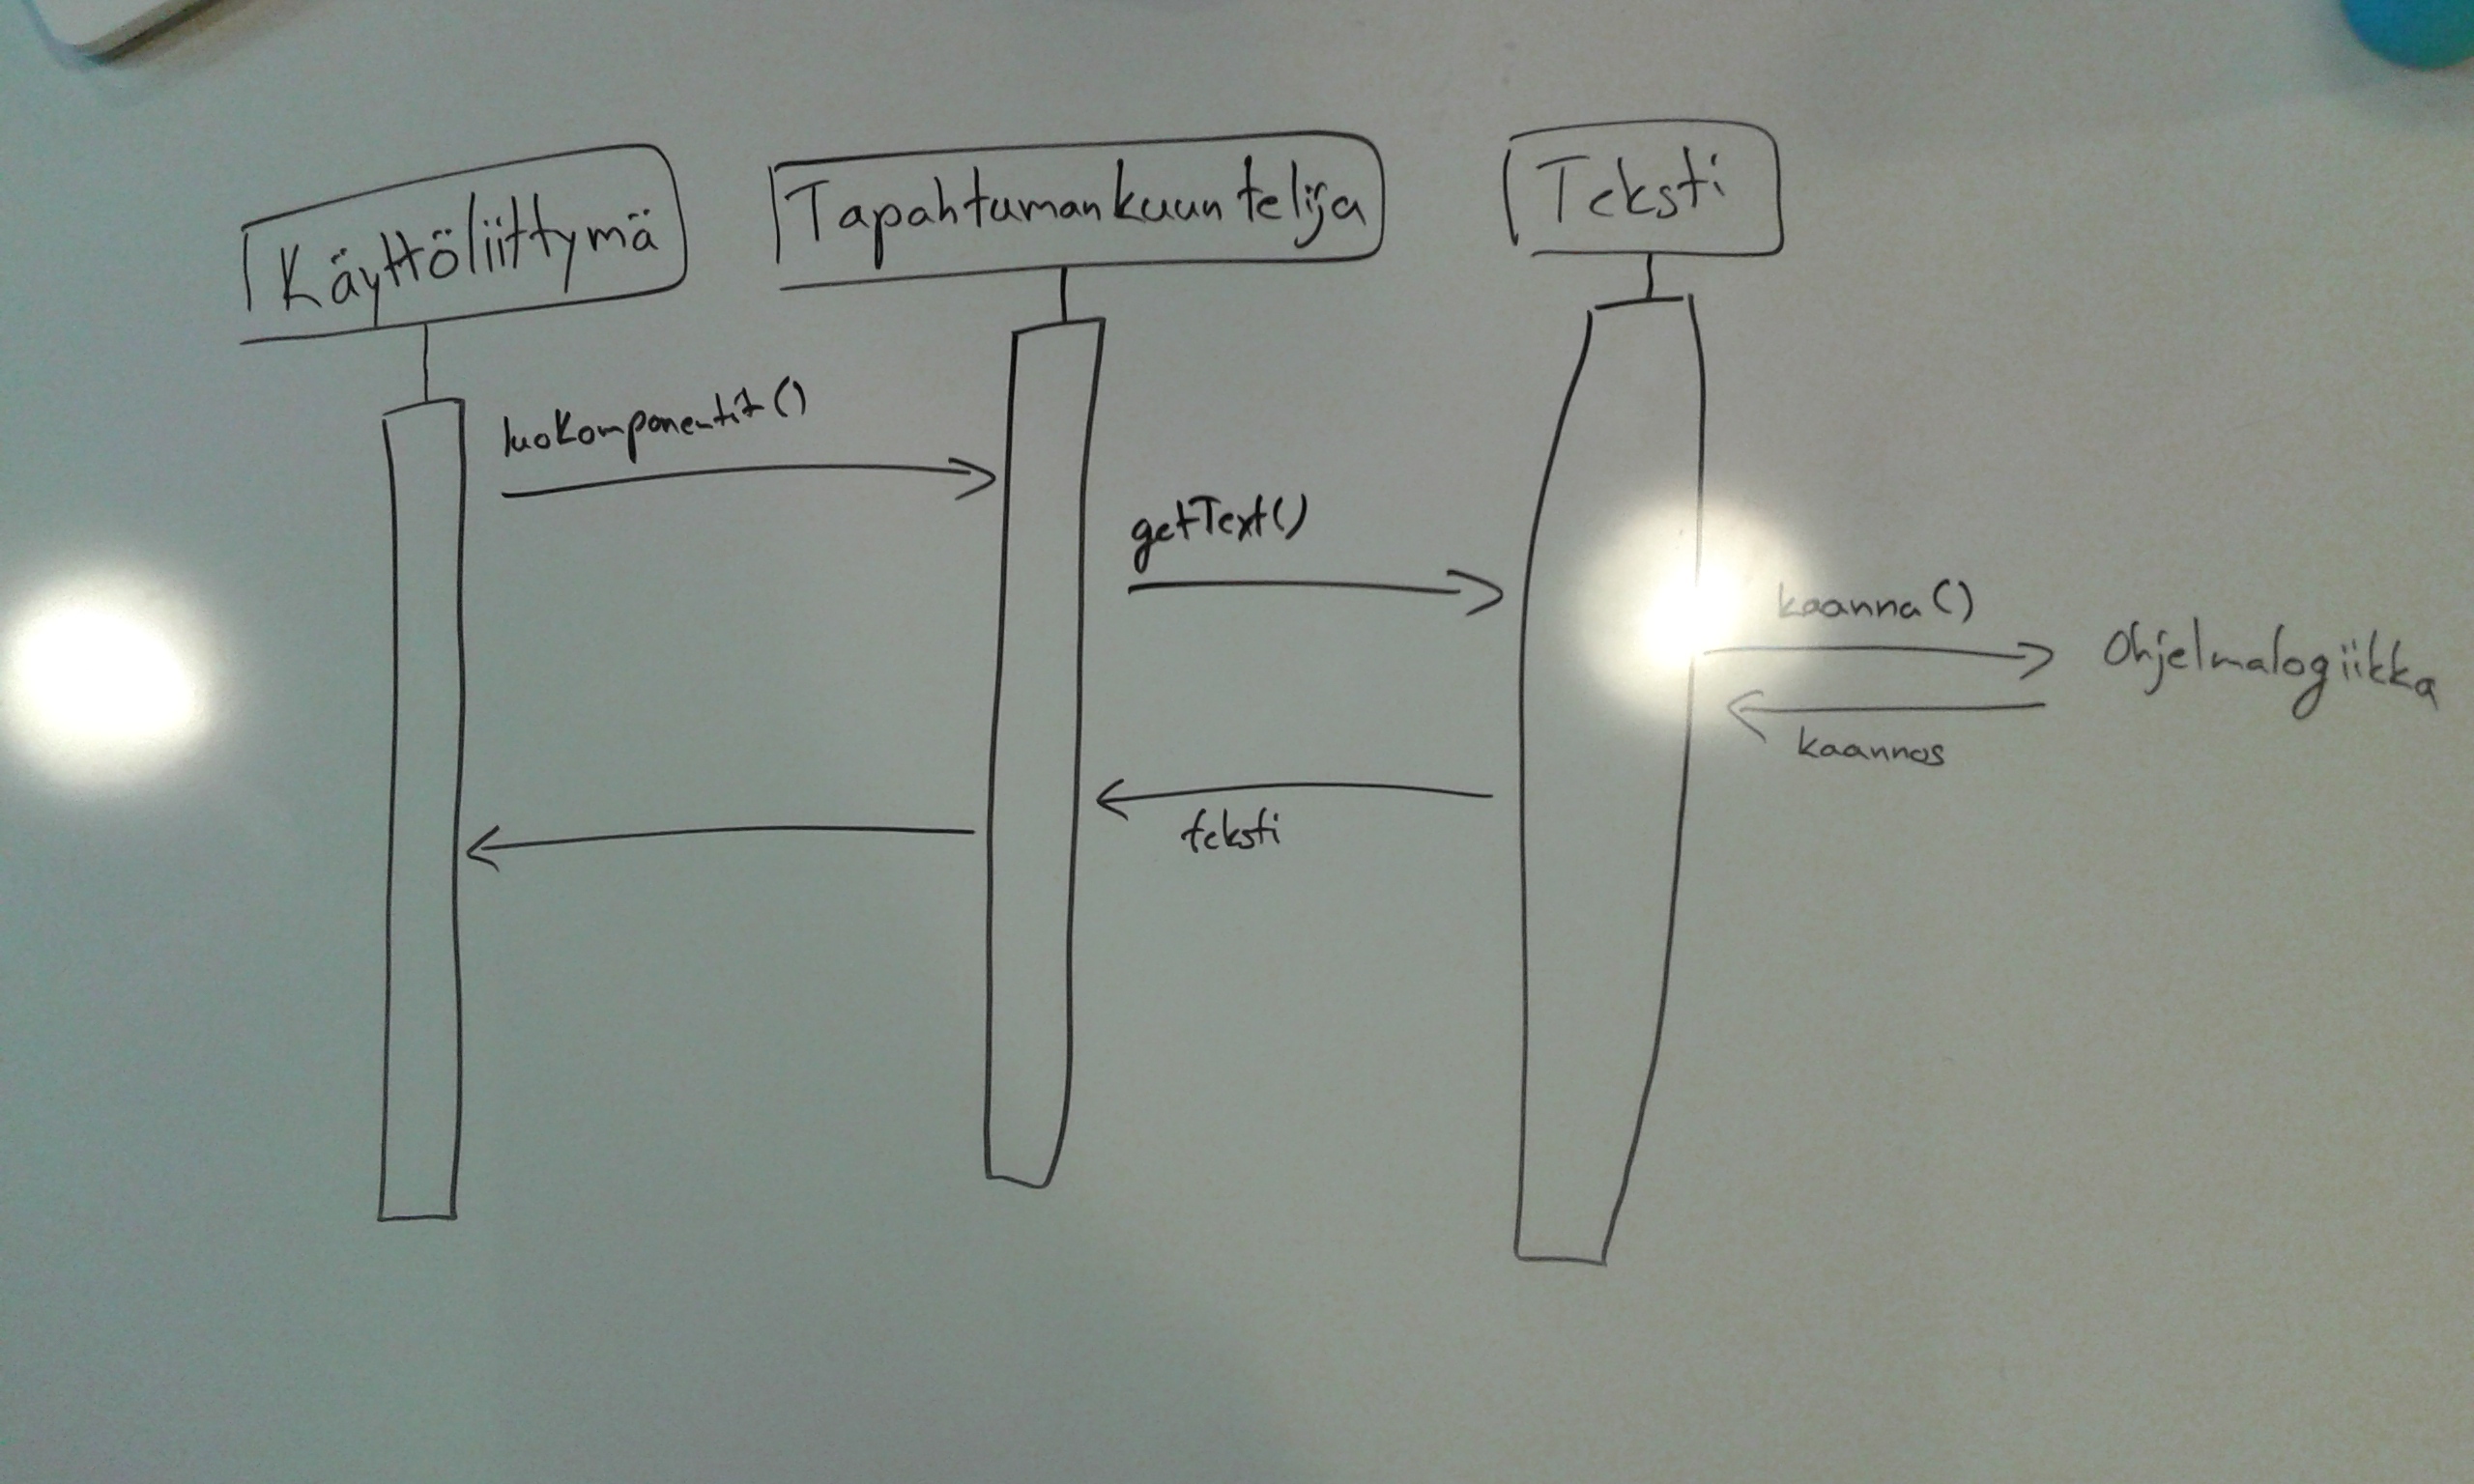 Käyttöliittymä
Tapahtumankuuntelija
Teksti
luoKomponentit()
getText()
kaanna()
Ohjelmalogiikka
kaannos
teksti